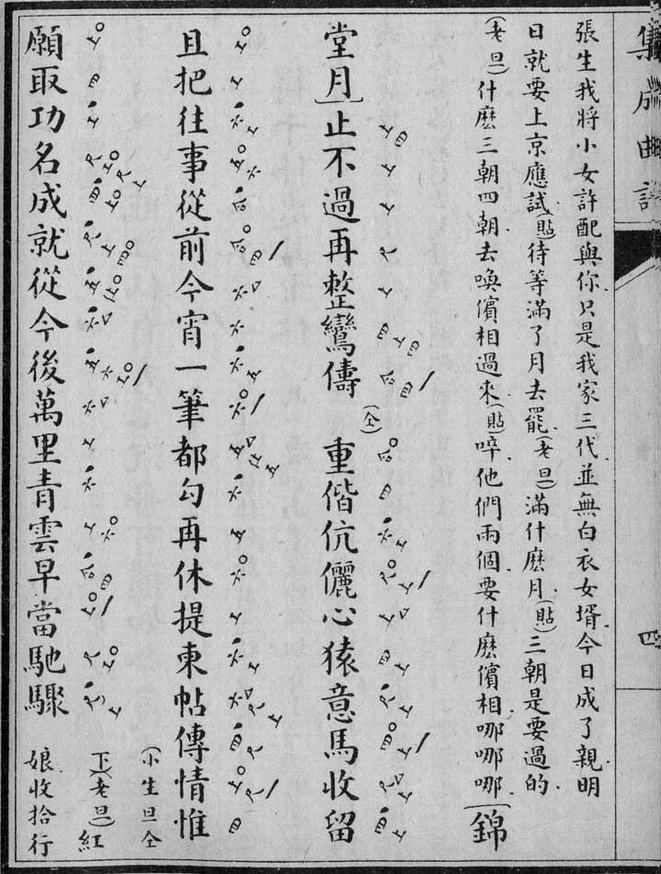 集成曲譜
四
張生我將小女許配與你只是我家三代並無白衣女壻今日成了親明
日就要上京應試(貼)待等滿了月去罷(老旦)滿什麽月(貼)三朝是要過的
(老旦)什麽三朝四朝去喚儐相過來(貼)啐他們兩個要什麽儐相哪哪哪(錦
堂月)止不過再整鸞儔(仝)重偕伉儷心猿意馬收留
且把往事從前今宵一筆都勾再休提柬帖傳情惟
願取功名成就從今後萬里青雲早當馳驟(小生旦仝
下)(老旦)紅
娘收拾行